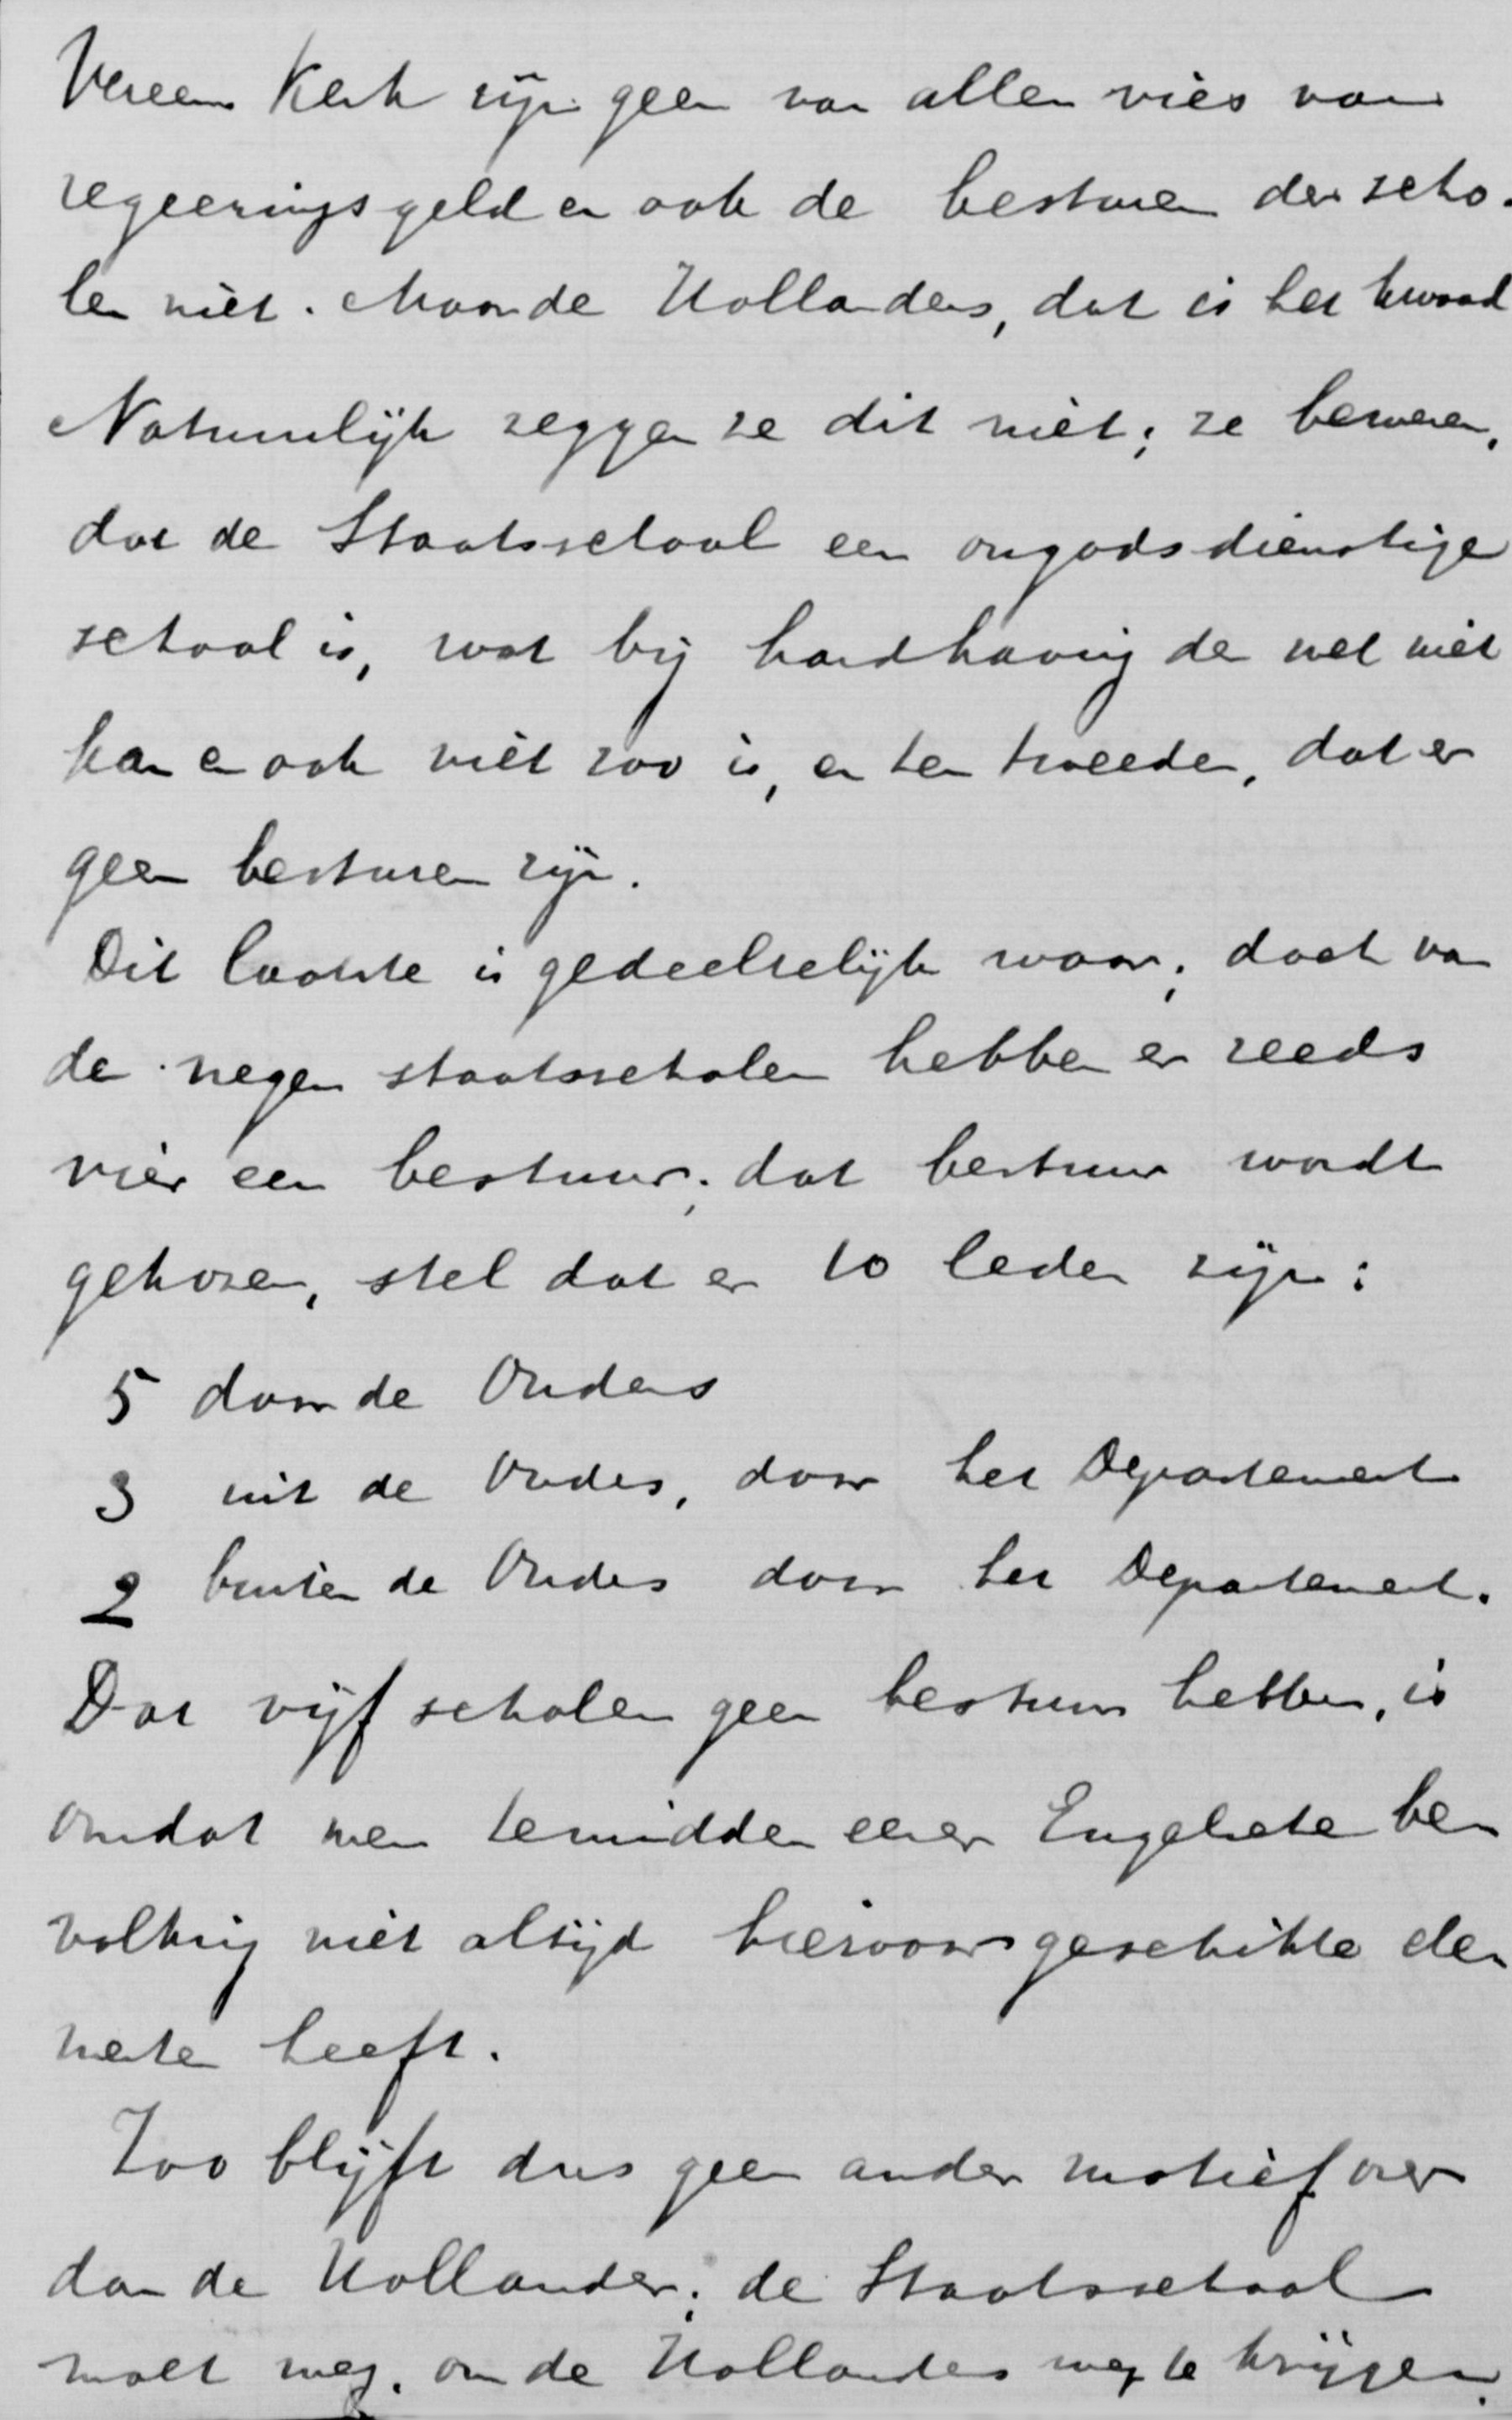 Vereen. Kerk zijn geen van allen vies van
regeeringsgeld en ook de besturen der scho-
len niet. Maar de Hollanders, dat is het kwaad
Natuurlijk zeggen ze dit niet; ze beweren,
dat de Staatsschool een ongodsdienstige
school is, wat bij handhaving der wet niet
kan en ook niet zoo is, en ten tweeden, dat er
geen besturen zijn.
Dit laatste is gedeeltelijk waar; doch van
de negen staatsscholen hebben er reeds
vier een bestuur; dat bestuur wordt
gekozen, stel dat er 10 leden zijn:
5 door de Ouders
3 uit de Ouders, door het Departement
2 buiten de Ouders door het Departement.
Dat vijf scholen geen bestuur hebben, is
omdat men temidden eener Engelsche be-
volking niet altijd hiervoor geschikte ele-
menten heeft.
Zoo blijft dus geen ander motief over
dan de Hollander; de Staatsschool
moet weg, om de Hollanders weg te krijgen.